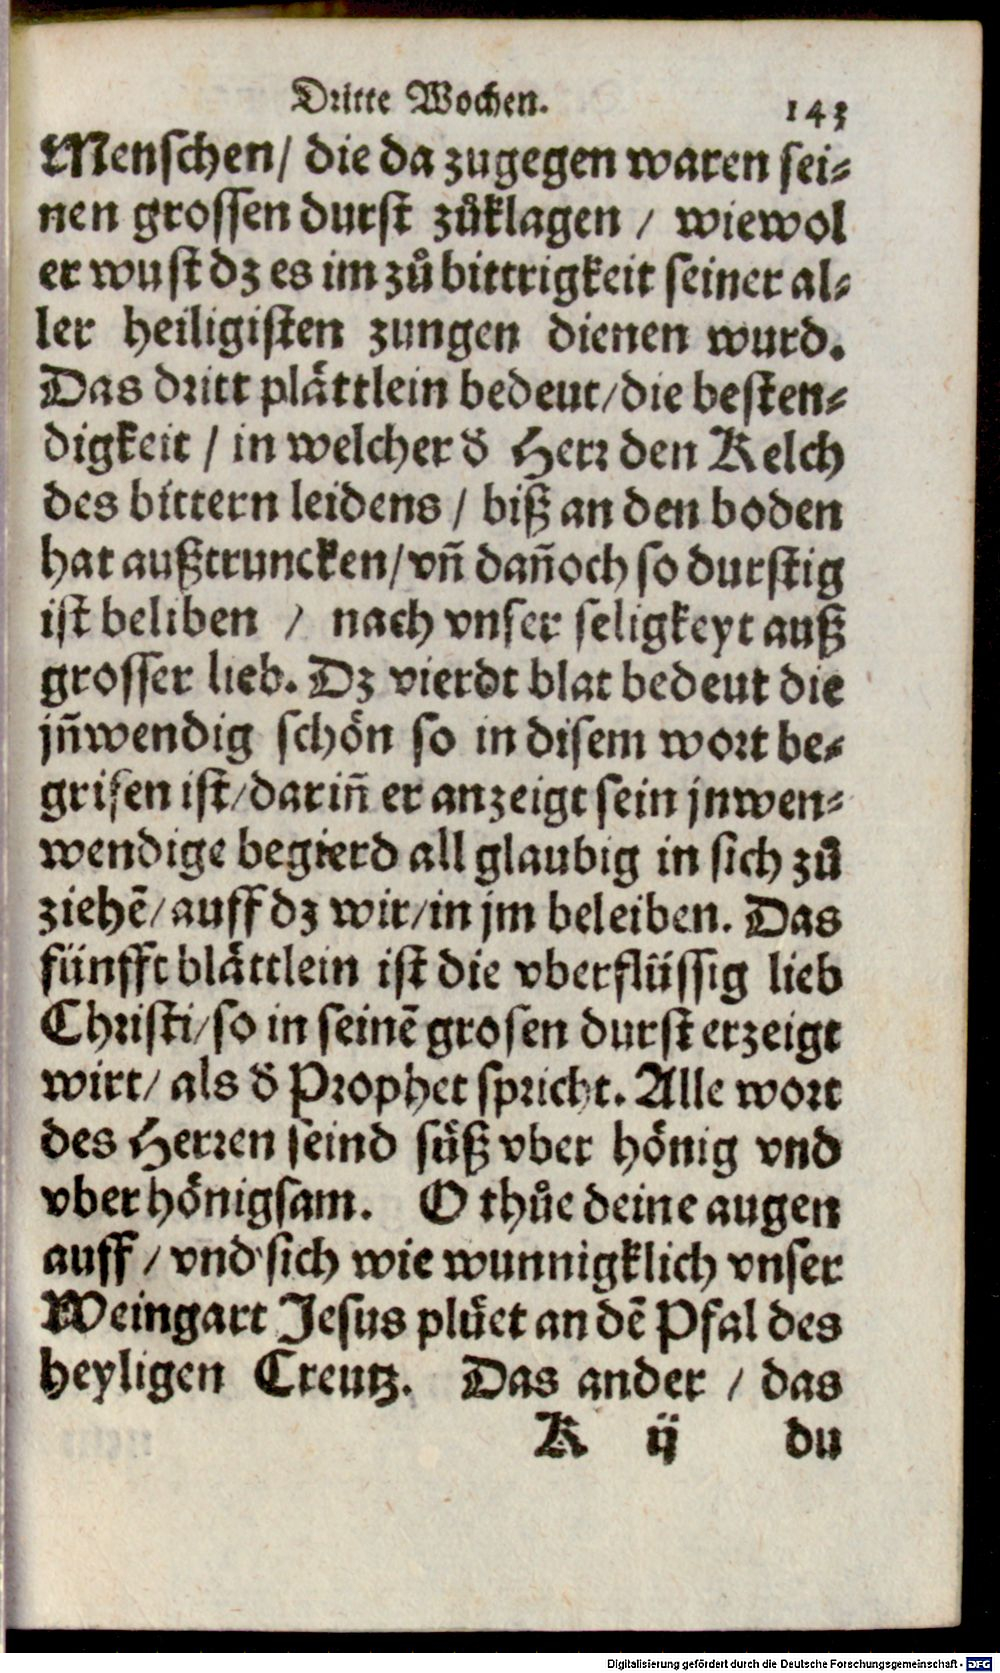 Dritte Wochen. 143
Menschen/ die da zugegen waren sei⸗
nen grossen durst zůklagen / wiewol
er wust dz es im zů bittrigkeit seiner al⸗
ler heiligisten zungen dienen wurd.
Das dritt plättlein bedeut/die besten⸗
digkeit / in welcher d̕ Herr den Kelch
des bittern leidens / biß an den boden
hat außtruncken/vn̄ dan̄och so durstig
ist beliben / nach vnser seligkeyt auß
grosser lieb. Dz vierdt blat bedeut die
jn̄wendig schön so in disem wort be⸗
grifen ist/darin̄ er anzeigt sein jnwen⸗
wendige begierd all glaubig in sich zů
ziehē/auff dz wir/in jm beleiben. Das
fünfft blättlein ist die vberflüssig lieb
Christi/so in seinē grosen durst erzeigt
wirt/ als d̕ Prophet spricht. Alle wort
des Herren seind süß vber hönig vnd
vber hönigsam. O thůe deine augen
auff / vnd sich wie wunnigklich vnser
Weingart Jesus plüet an dē Pfal des
heyligen Creutz. Das ander / das
K ij du
Digitalisierung gefördert durch die Deutsche Forschungsgemeinschaft - DFG